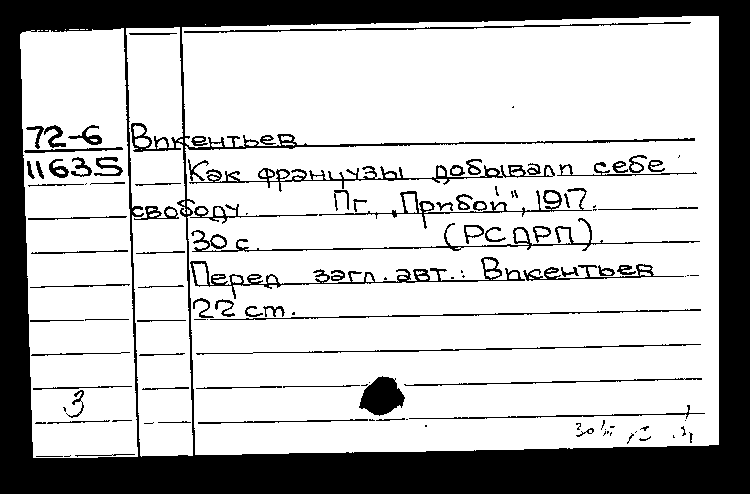 72-6 Викентьев.
11635 Как французы добывали себе
свободу. Пг., „Прибой", 1917.
30 с. (РСДРП).
Перед загл. авт.: Викентьев
22 cm.
3